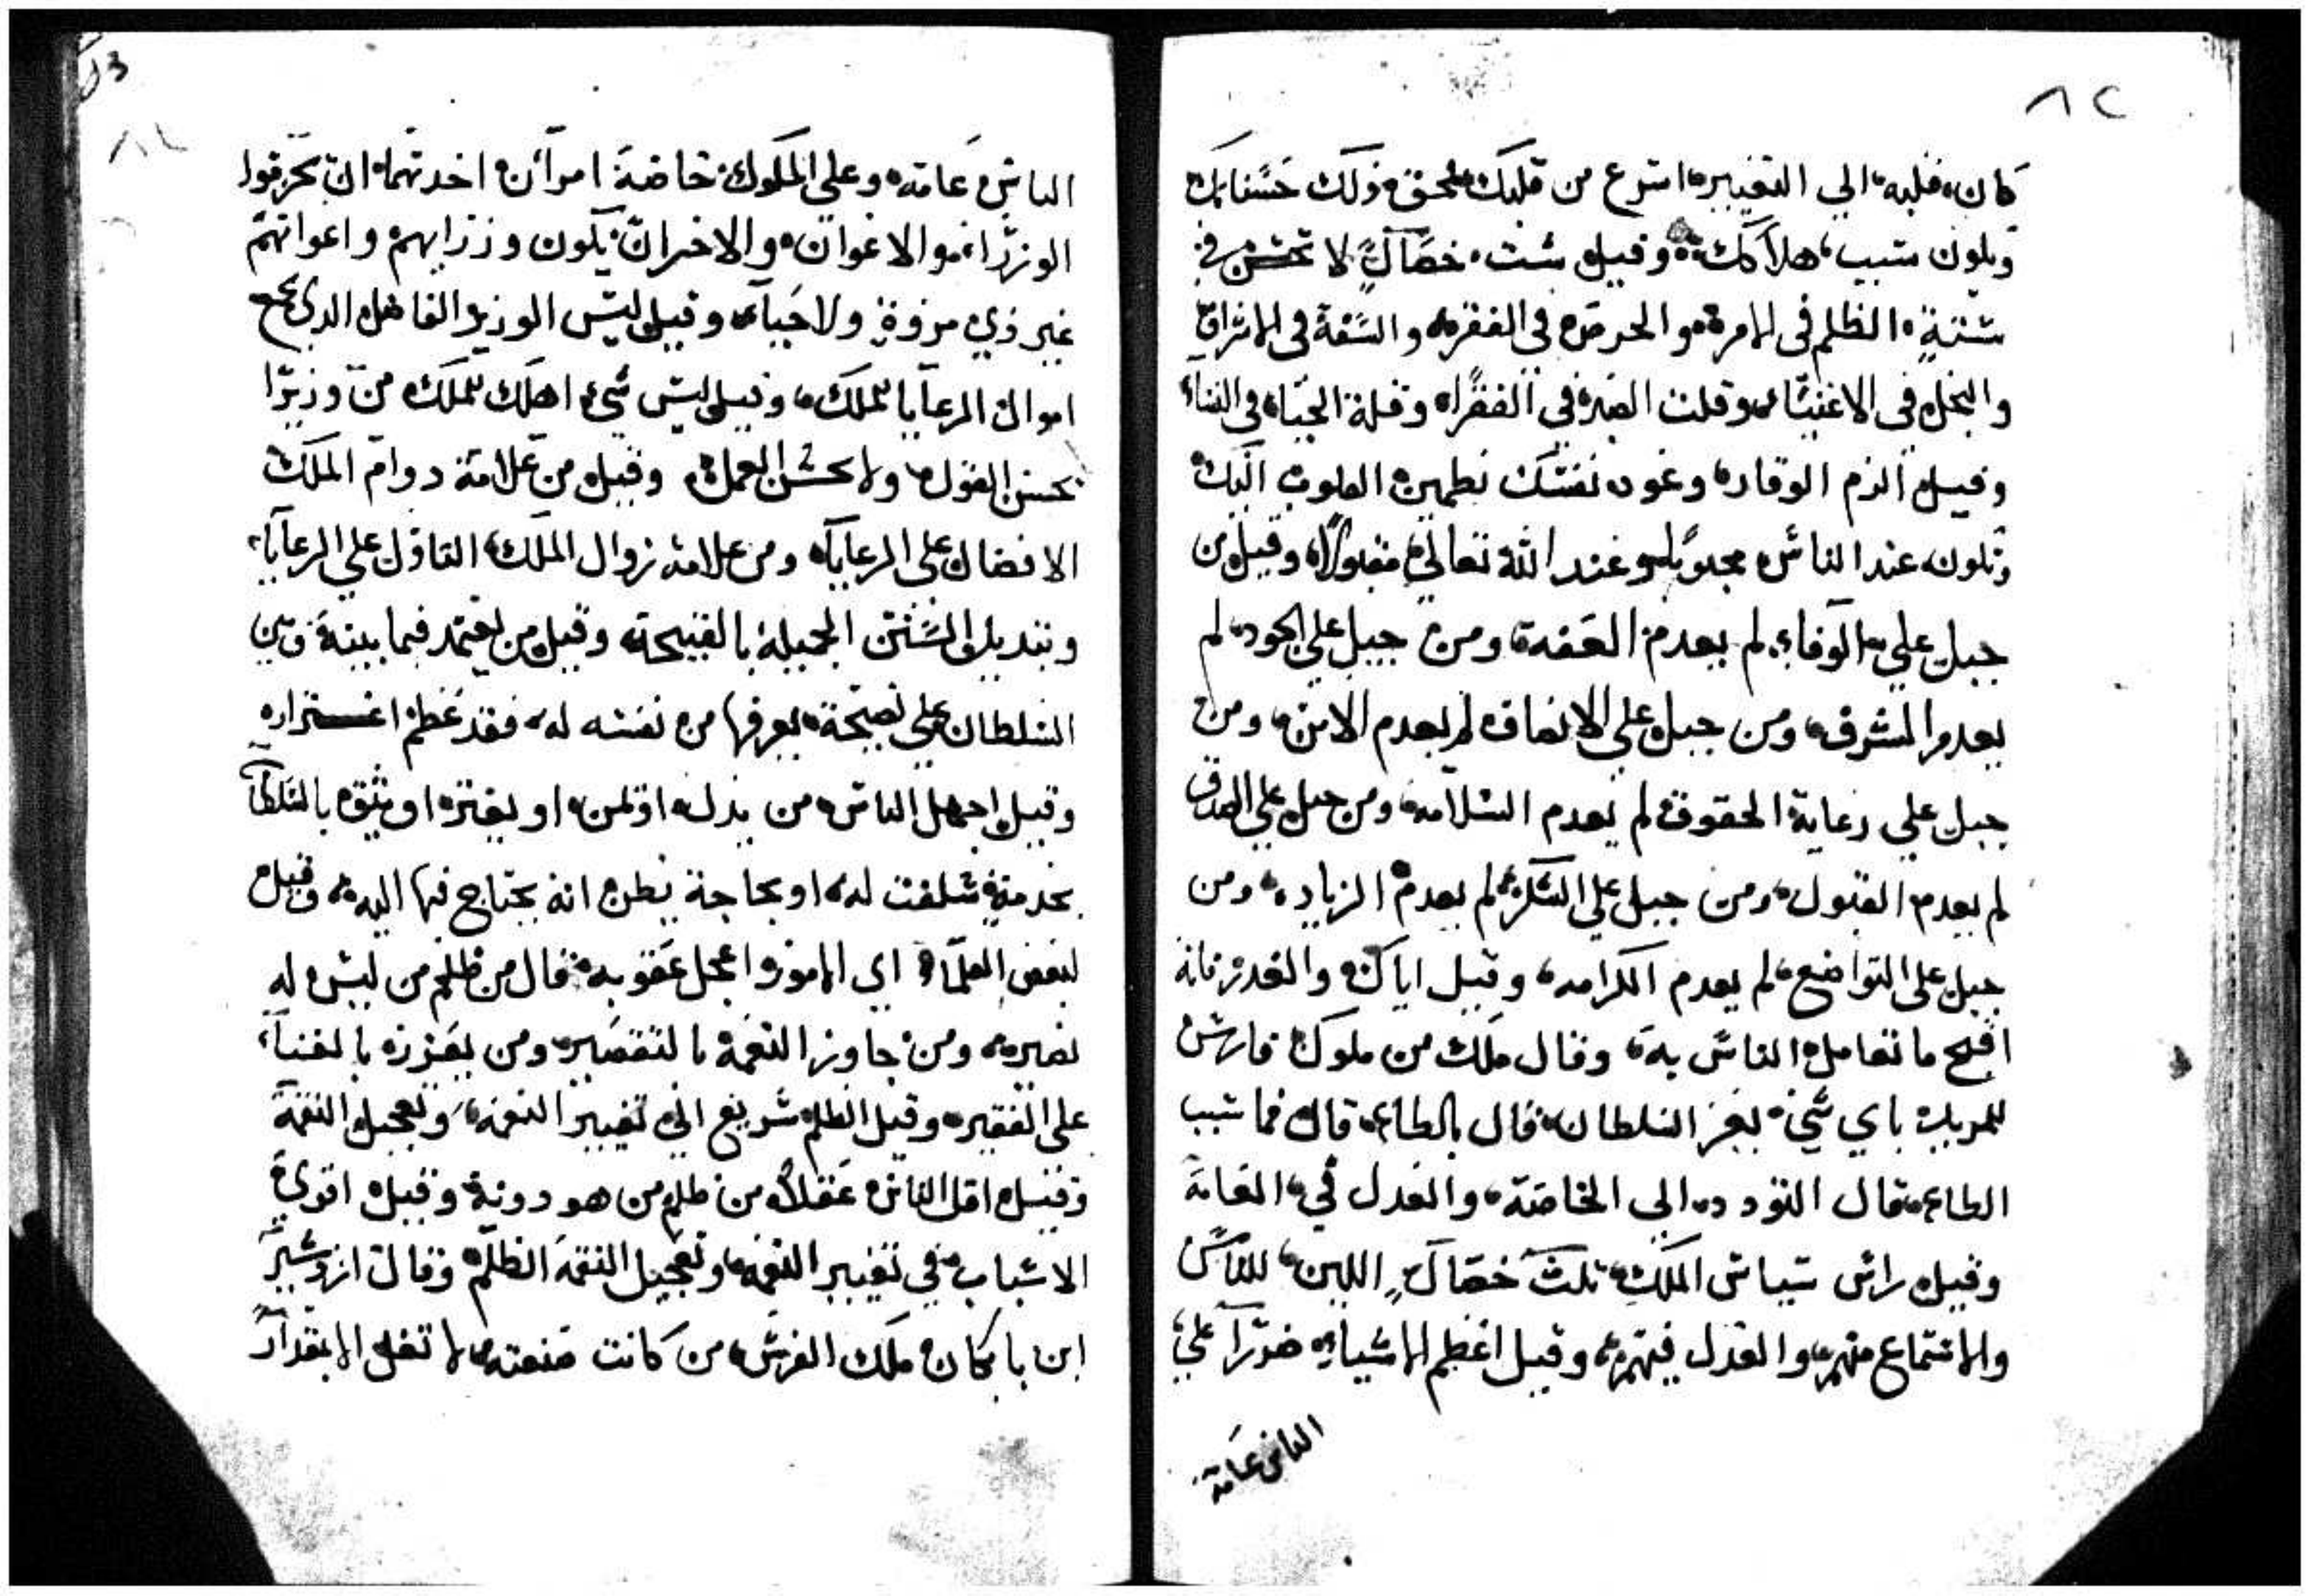 ٨٢
كان، قلبه، الي التغيير، اسرع من قلبك، فمحق ذلك حسناتك
ويكون سبب، هلاكك، وقيل ست، خصال لا تحسن في
ستة، الظلم في الامرة، والحرص في الفقر، والسفه في الاشراف
والبخل في الاغنيا، وقلت الغيرة في الفقراء وقلة الحياء في النساء
وقيل الزم الوقار، وعود نفسك تطمين القلوب اليك
وتكون عند الناس محبوبا، وعند الله تعالي مقبولا، وقيل من
جبل علي الوفاء لم يعدم العفة، ومن جبل علي الجود، لم
يعدم الشرف، ومن جبل علي الانصاف لم يعدم الامن، ومن
جبل علي رعاية الحقوق لم يعدم السلامة، ومن جبل علي الصدق
لم يعدم القبول، ومن جبل علي الشكر، لم يعدم الزياده، ومن
جبل علي التواضع، لم يعدم الكرامه، وقيل اياك والغدر فانه
اقبح ما تعامل الناس به، وقال ملك من ملوك فارس
للمربد باي شيء يعز السلطان، قال بالطاعه، قال فما سبب
الطاعه قال التودد، الي الخاصة، والعدل في، العامة
وقيل راس سياس الملك، ثلث خصال اللين، للناس
والاستماع منهم، والعدل فيهم، وقيل اعظم الاشياء ضررا علي
الناس عامة
الناس عامة، وعلي الملوك، خاصة امران احدهما، ان يحرموا
الوزراء، والاعوان، والاخر ان يكون وزرايهم واعوانهم
غير ذي مروة ولا حياء، وقيل ليس الوزير الفاضل الدي يجمع
اموال الرعايا للملك، وقيل ليس شيء اهلك للملك من وزيرا
يحسن القول، ولا يحسن العمل، وقيل من علامة دوام الملك
الافضال علي الرعايا، ومن علامة زوال الملك، التاول علي الرعايا،
وتبديل السنن الجميلة بالقبيحة، وقيل من يعتمد فيما بينه وبين
السلطان علي نصيحة، يعرفها من نفسه له، فقد عظم اغتراره
وقيل اجهل الناس، من يذل، او يمن، او يغتر، او يثق، بالسلطان
بخدمة سلفت له، او بحاجة يظن انه يحتاج فيها اليه، وقيل
لبعض العلماء اي الامور اعجل عقوبه، قال من ظلم من ليس له
نصير، ومن جاوز النعمة بالتقصير، ومن يعززه بالغناء،
علي الفقير، وقيل الظلم سريع الي تغيير النعمة، وتعجيل النقمة
وقيل اقل الناس عقلا، من ظلم من هو دونه، وقيل اقوي
الاسباب في تغيير النعمة، وتعجيل النقمة الظلم، وقال ازدشير
ابن بابكان ملك الفرس، من كانت صنعته لا تغل الا بمقدار